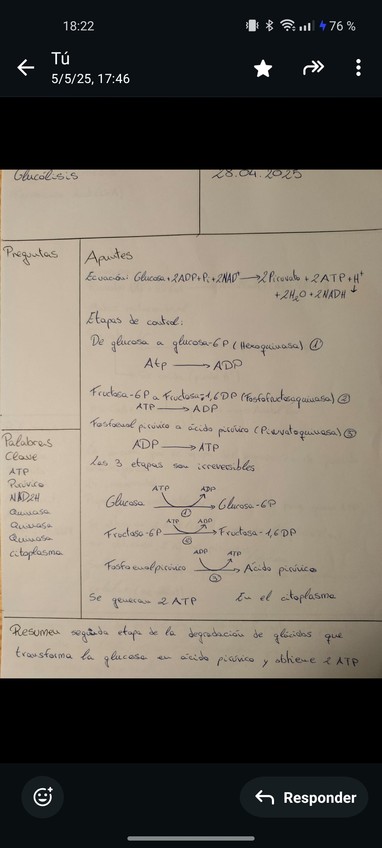 18:22
76 %
Tú
5/5/25, 17:46
Glucólisis
28.04.2025
Preguntas
Apuntes
Ecuación: Glucosa+2ADP+Pi+2NAD⁺→2Piruvato+2ATP+H⁺
+2H₂O+2NADH
Etapas de control:
De glucosa a glucosa-6P (Hexoquinasa) ①
Atp → ADP
Fructosa-6P a Fructosa-1,6DP (Fosfofructosaquinasa) ②
ATP → ADP
Fosfoenol pirúvico a ácido pirúvico (Piruvatoquinasa) ③
ADP → ATP
Las 3 etapas son irreversibles
Palabras
Clave
ATP
Pirúvico
NADH
Quinasa
Quinasa
Quinasa
Citoplasma
ATP ADP
Glucosa → Glucosa-6P
①
ATP ADP
Fructosa-6P → Fructosa-1,6DP
②
ADP ATP
Fosfoenolpirúvico → Ácido pirúvico
③
Se generan 2 ATP En el citoplasma
Resumen segunda etapa de la degradación de glúcidos que
transforma la glucosa en ácido pirúvico y obtiene 2 ATP
Responder